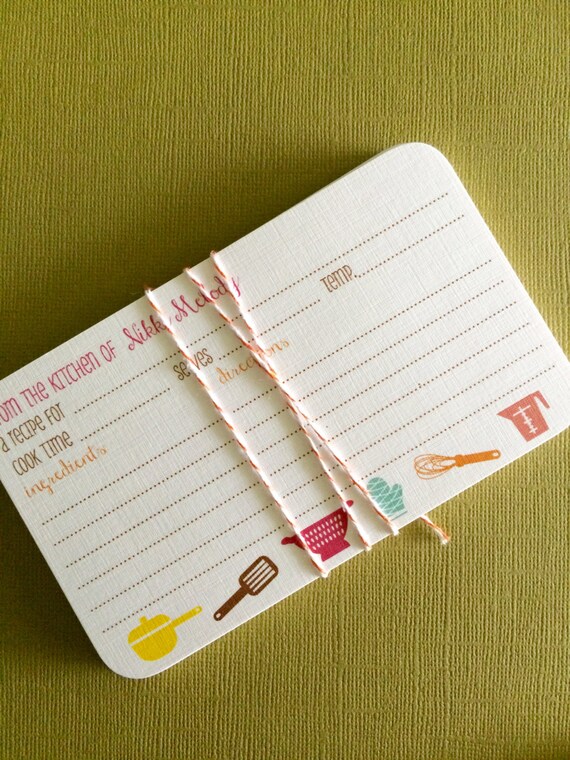 om THE KITCHEN OF Nikki Melody
a RECIPE FOR
COOK TIME serves TEMP
ingredients directions